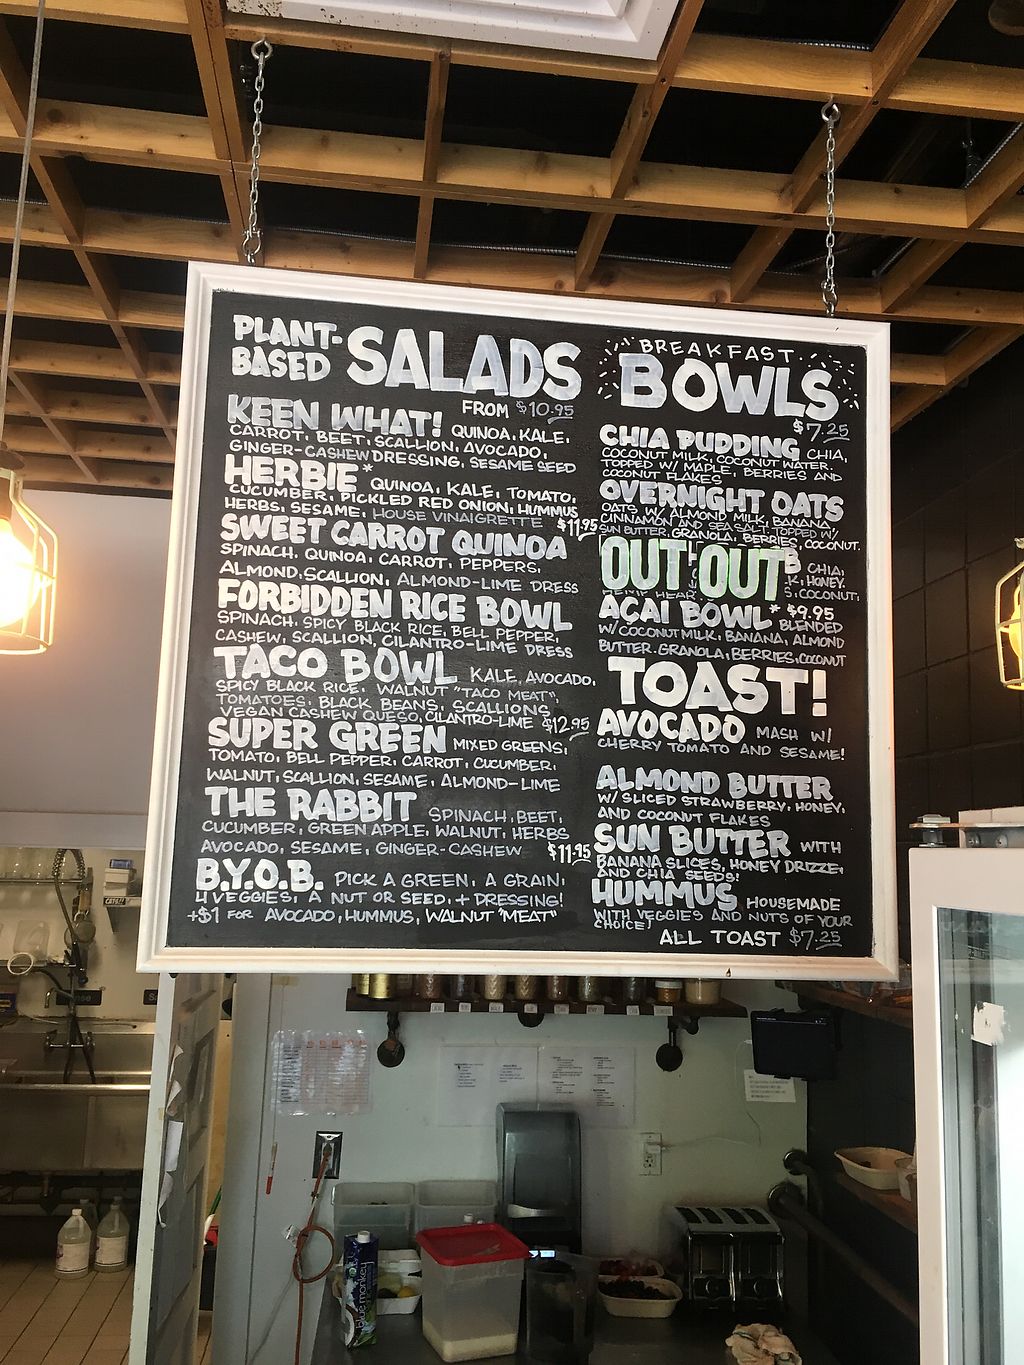 PLANT-BASED SALADS
FROM $10.95
KEEN WHAT! QUINOA, KALE,
CARROT, BEET, SCALLION, AVOCADO,
GINGER-CASHEW DRESSING, SESAME SEED
HERBIE* QUINOA, KALE, TOMATO,
CUCUMBER, PICKLED RED ONION, HUMMUS
HERBS, SESAME, HOUSE VINAIGRETTE $11.95
SWEET CARROT QUINOA
SPINACH, QUINOA, CARROT, PEPPERS,
ALMOND, SCALLION, ALMOND-LIME DRESS
FORBIDDEN RICE BOWL
SPINACH, SPICY BLACK RICE, BELL PEPPER,
CASHEW, SCALLION, CILANTRO-LIME DRESS
TACO BOWL KALE, AVOCADO,
SPICY BLACK RICE, WALNUT "TACO MEAT",
TOMATOES, BLACK BEANS, SCALLIONS
VEGAN CASHEW QUESO, CILANTRO-LIME $12.95
SUPER GREEN MIXED GREENS,
TOMATO, BELL PEPPER, CARROT, CUCUMBER,
WALNUT, SCALLION, SESAME, ALMOND-LIME
THE RABBIT SPINACH, BEET,
CUCUMBER, GREEN APPLE, WALNUT, HERBS
AVOCADO, SESAME, GINGER-CASHEW $11.95
B.Y.O.B. PICK A GREEN, A GRAIN,
4 VEGGIES, A NUT OR SEED, + DRESSING!
+$1 FOR AVOCADO, HUMMUS, WALNUT "MEAT"
BREAKFAST
BOWLS
$7.25
CHIA PUDDING CHIA,
COCONUT MILK, COCONUT WATER.
TOPPED W/ MAPLE, BERRIES AND
COCONUT FLAKES
OVERNIGHT OATS
OATS W/ ALMOND MILK, BANANA,
CINNAMON AND SEA SALT. TOPPED W/
SUN BUTTER, GRANOLA, BERRIES, COCONUT.
OUT OUT B CHIA,
K, HONEY.
HEMP HEAR S, COCONUT,
AÇAI BOWL* $9.95
BLENDED
W/ COCONUT MILK, BANANA, ALMOND
BUTTER. GRANOLA, BERRIES, COCONUT
TOAST!
AVOCADO MASH W/
CHERRY TOMATO AND SESAME!
ALMOND BUTTER
W/ SLICED STRAWBERRY, HONEY,
AND COCONUT FLAKES
SUN BUTTER WITH
BANANA SLICES, HONEY DRIZZE,
AND CHIA SEEDS!
HUMMUS HOUSEMADE
WITH VEGGIES AND NUTS OF YOUR
CHOICE!
ALL TOAST $7.25
blue monkey